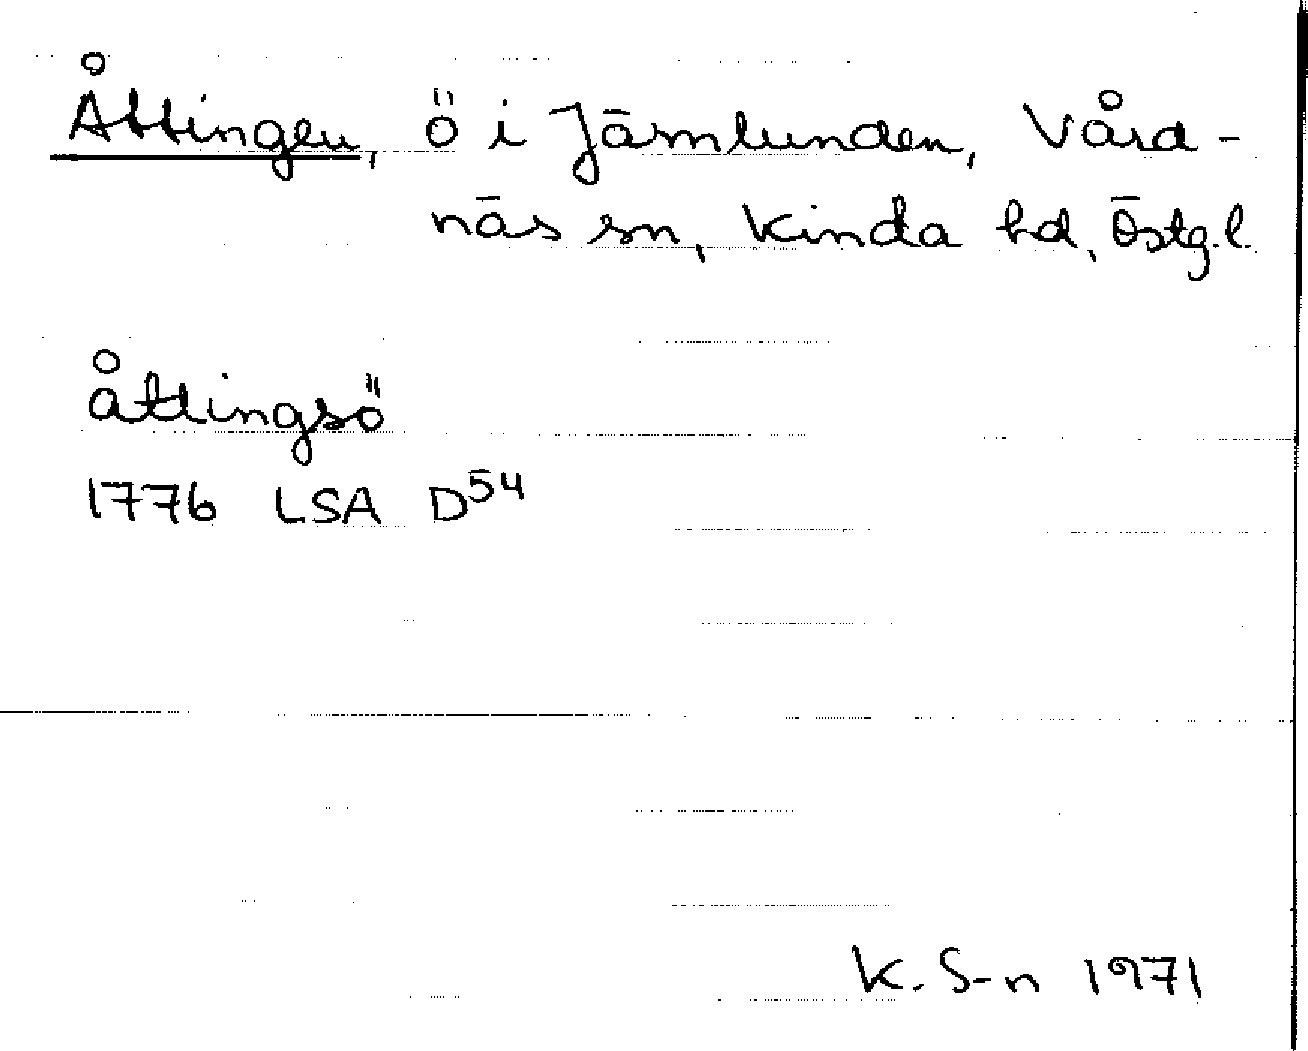 Åttingen, ö i Jämlunden, Vård-
näs sn, Kinda hd, Östg.l.
åttingsö
1776 LSA D54
K. S-n 1971